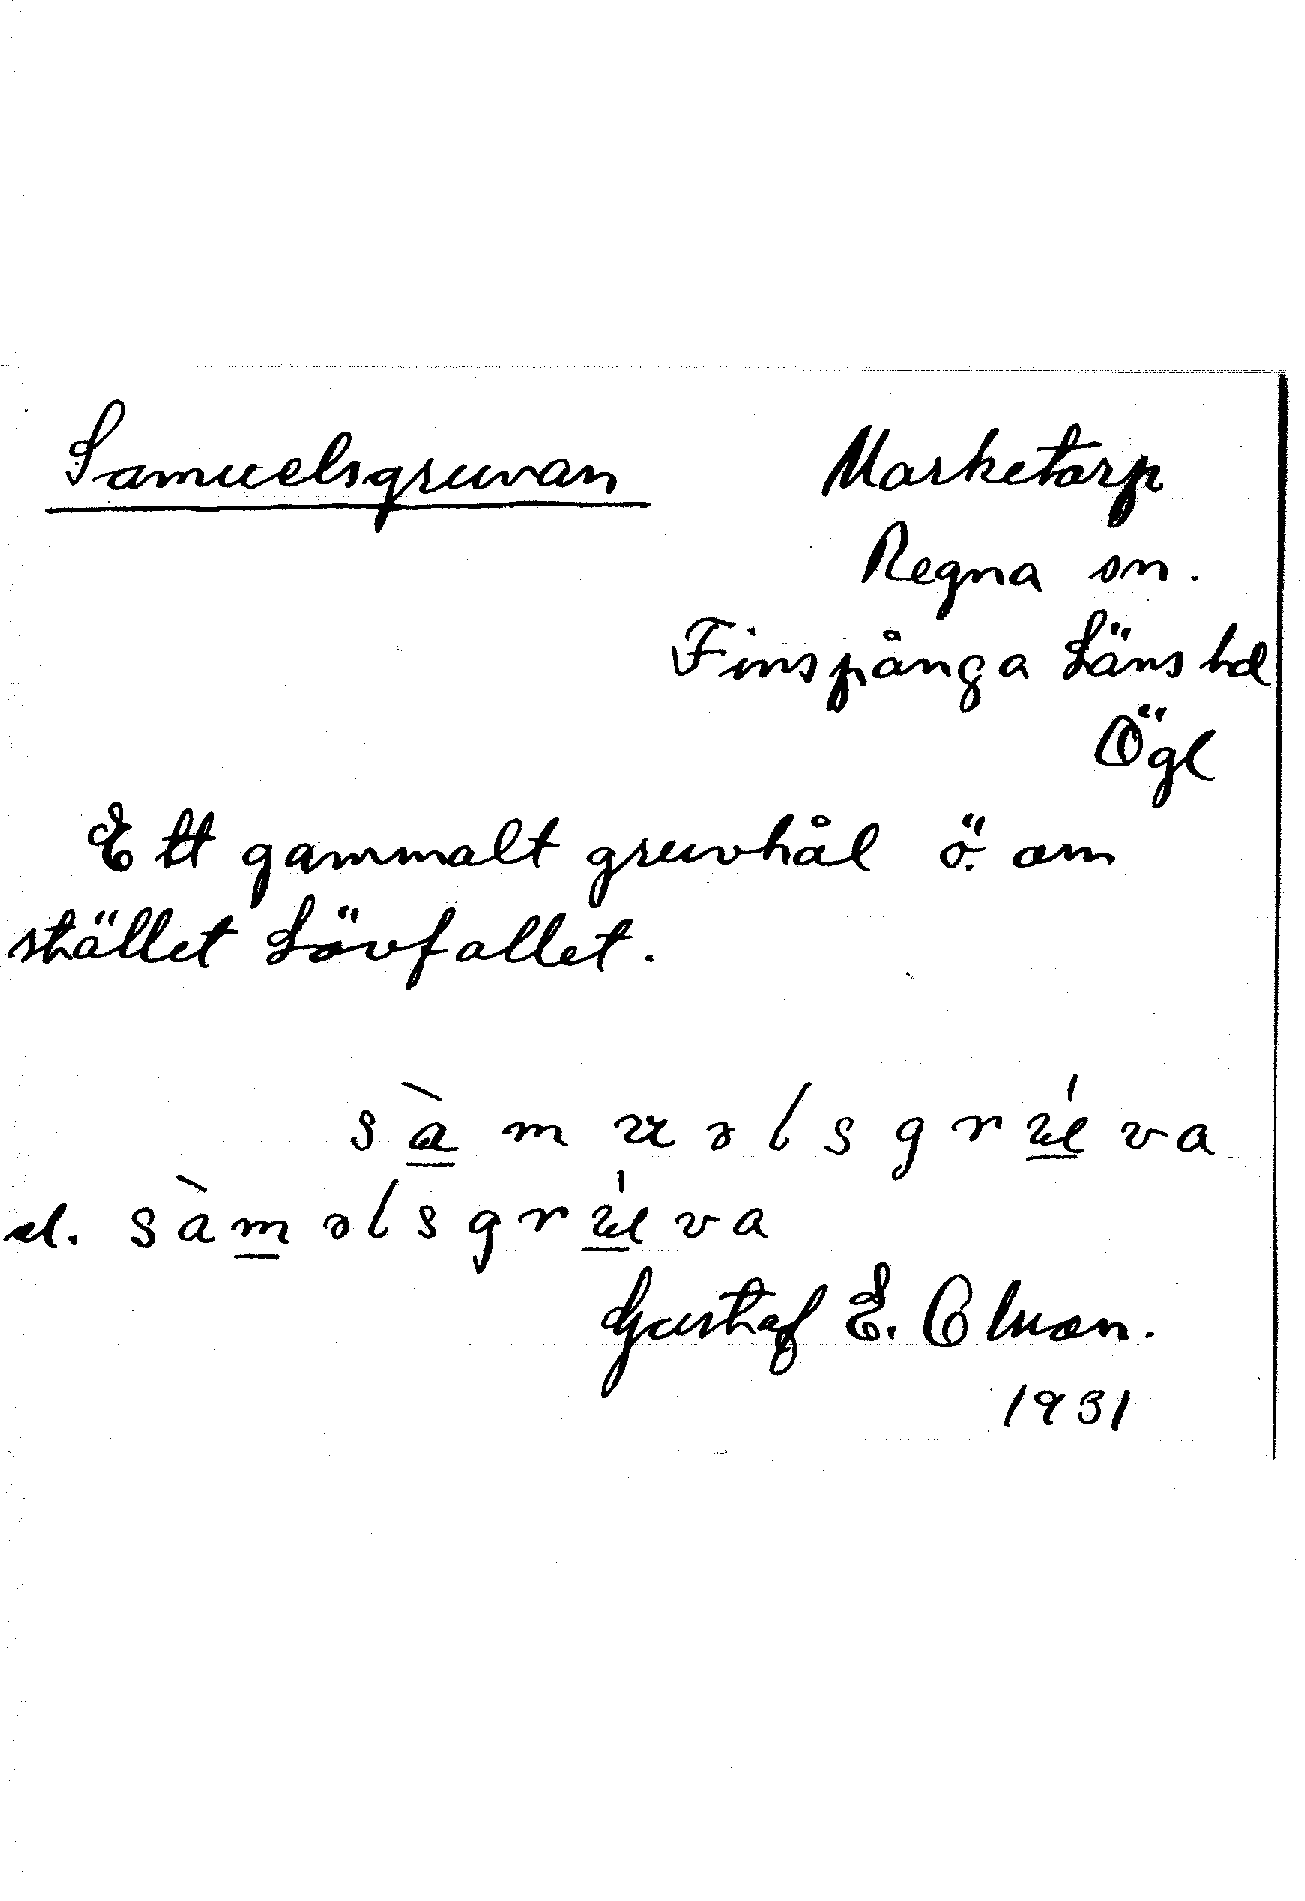 Samuelsgruvan
Marketorp
Regna sn.
Finspånga Läns hd
Ögl
Ett gammalt gruvhål ö. om
stället Lövfallet.
sàmuəlsgrúva
el. sàməlsgrúva
Gustaf E.
1931